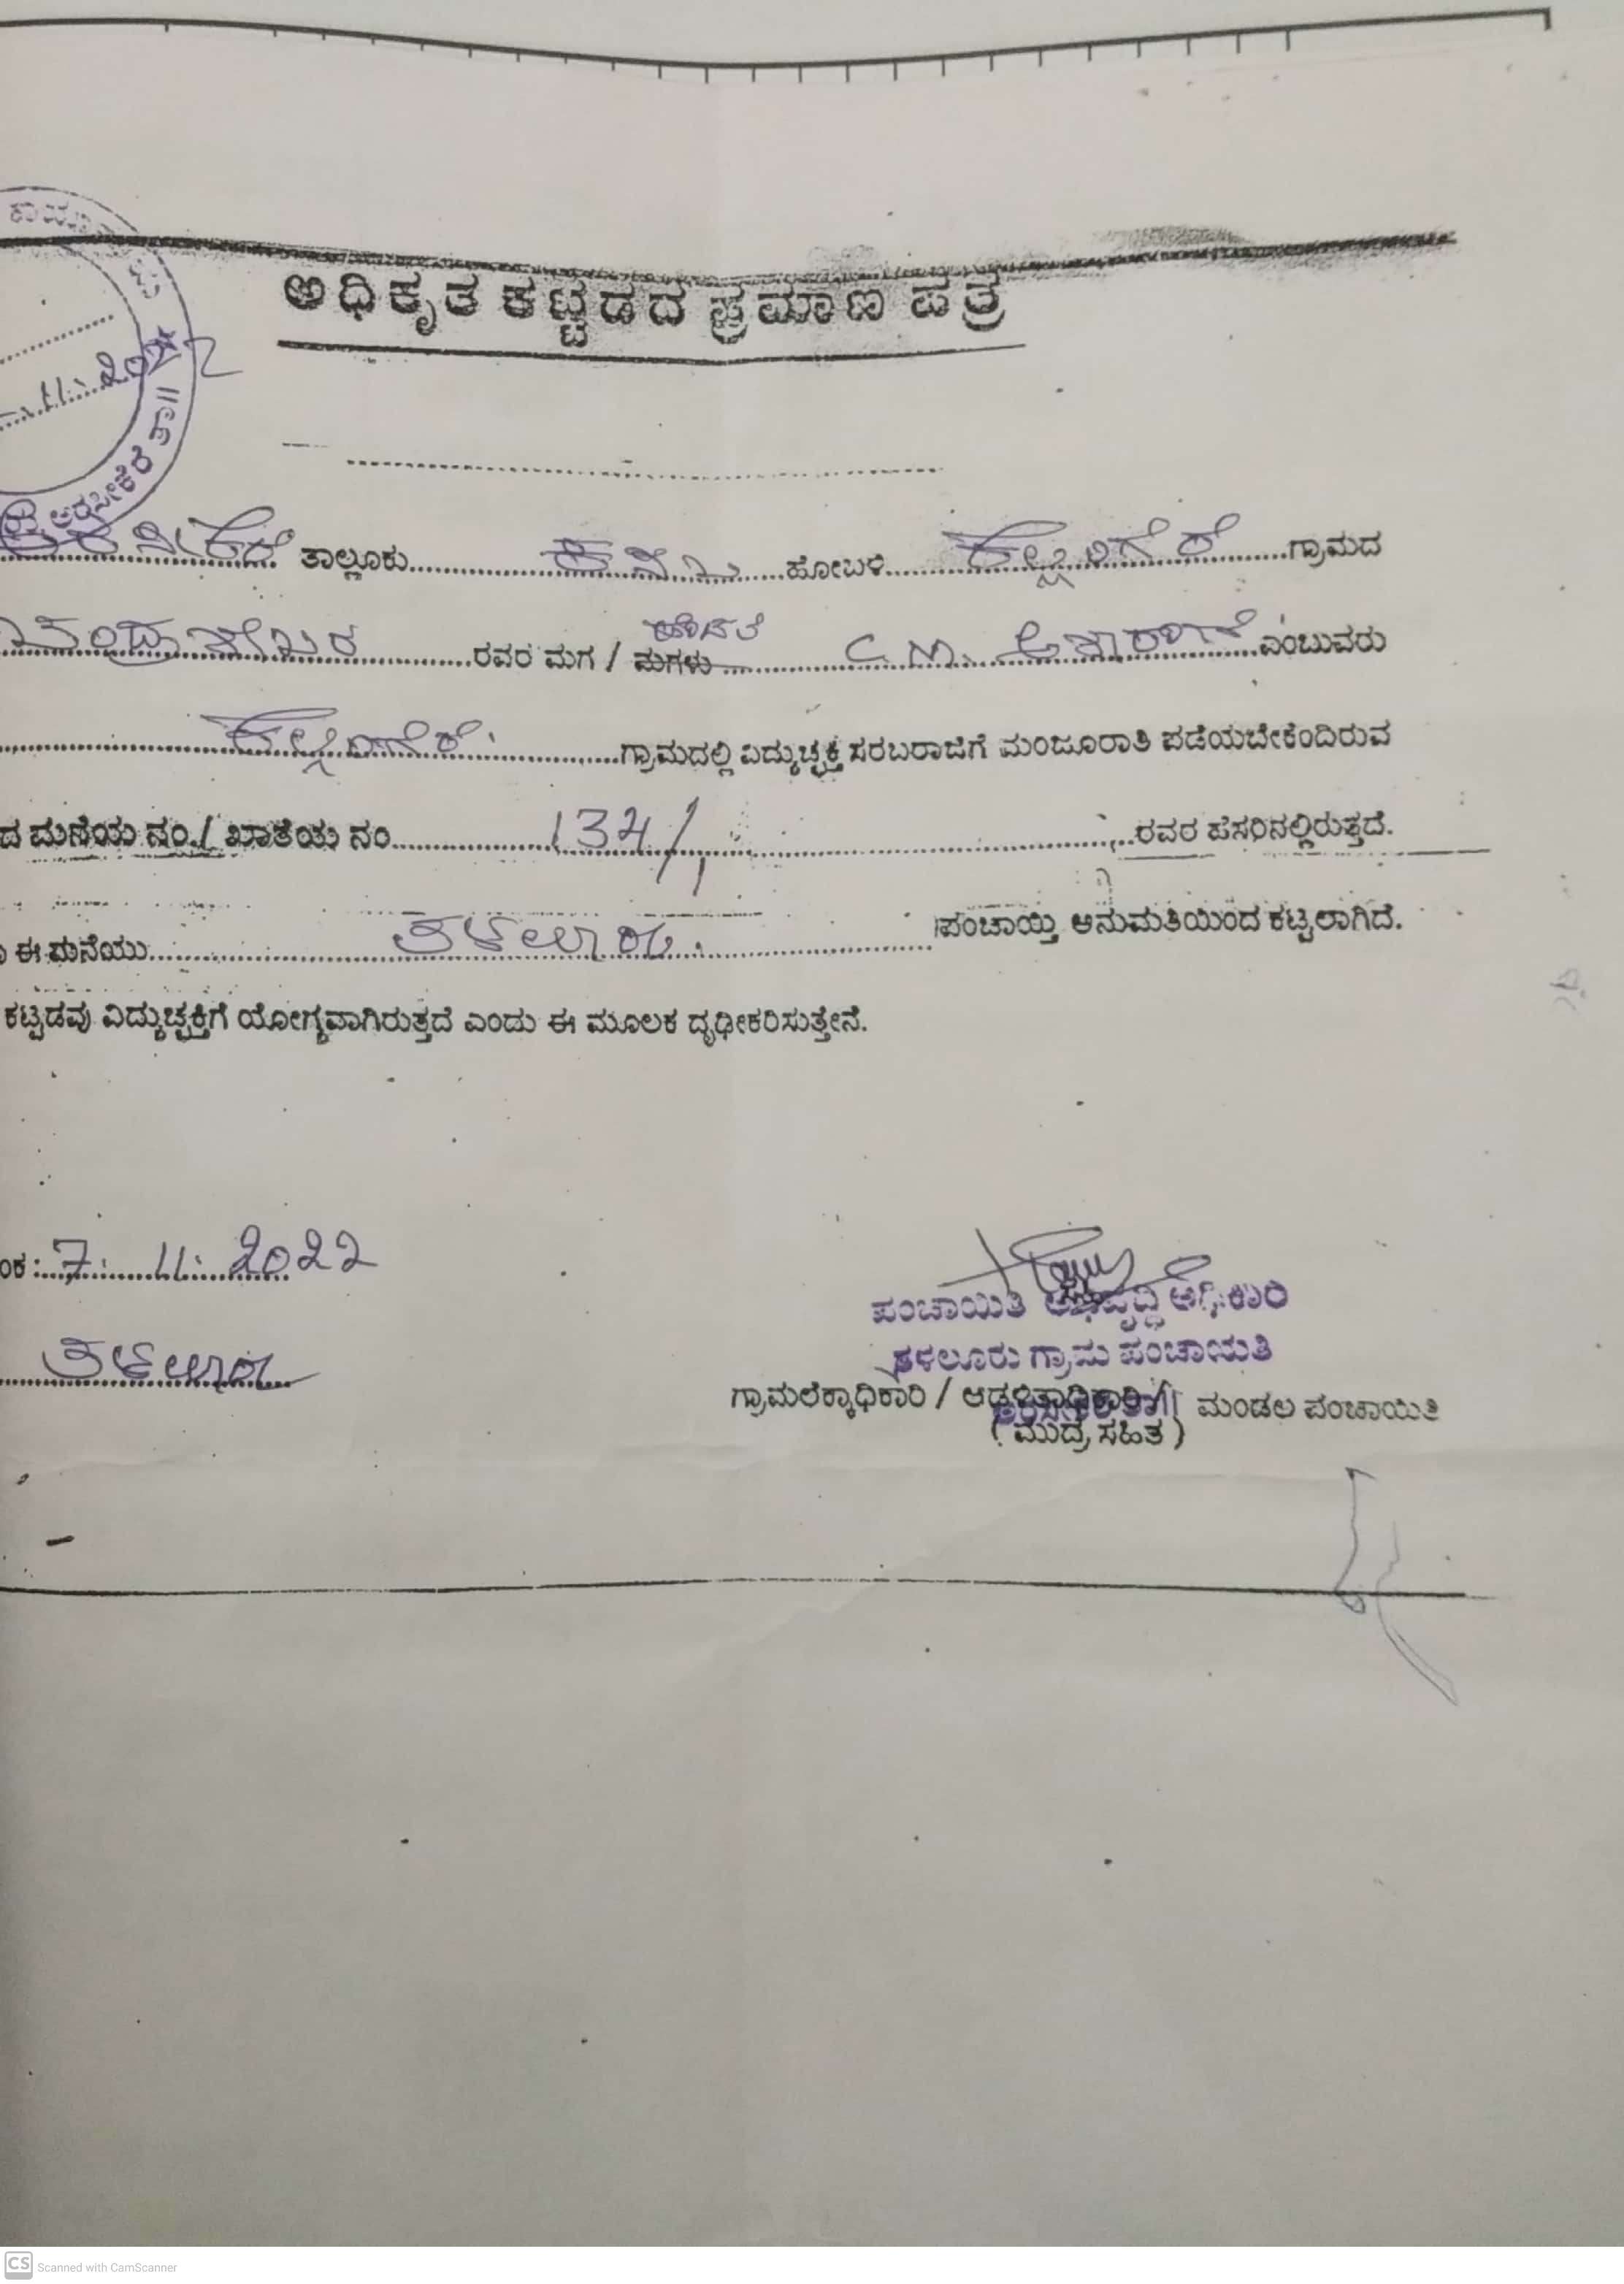 ಅಧಿಕೃತ ಕಟ್ಟಡದ ಪ್ರಮಾಣ ಪತ್ರ
11.2022
ಅರಸೀಕೆರೆ
ಅರಸೀಕೆರೆ ತಾಲ್ಲೂಕು ಕಸಬಾ ಹೋಬಳಿ ಕಲ್ಲಂಗೆರೆ ಗ್ರಾಮದ
ಚಂದ್ರಶೇಖರ ರವರ ಮಗ / ಮಗಳು C.M. ಎಂಬುವರು
ಕಲ್ಲಂಗೆರೆ ಗ್ರಾಮದಲ್ಲಿ ವಿದ್ಯುಚ್ಛಕ್ತಿ ಸರಬರಾಜಿಗೆ ಮಂಜೂರಾತಿ ಪಡೆಯಬೇಕೆಂದಿರುವ
ದ ಮನೆಯ ನಂ./ ಖಾತೆಯ ನಂ 134/1 ರವರ ಹೆಸರಿನಲ್ಲಿರುತ್ತದೆ.
ಈ ಮನೆಯು ತಳಲೂರು ಪಂಚಾಯ್ತಿ ಅನುಮತಿಯಿಂದ ಕಟ್ಟಲಾಗಿದೆ.
ಕಟ್ಟಡವು ವಿದ್ಯುಚ್ಛಕ್ತಿಗೆ ಯೋಗ್ಯವಾಗಿರುತ್ತದೆ ಎಂದು ಈ ಮೂಲಕ ದೃಢೀಕರಿಸುತ್ತೇನೆ.
ಂಕ : 7. 11. 2022
ಪಂಚಾಯಿತಿ ಅಭಿವೃದ್ಧಿ ಅಧಿಕಾರಿ
ತಳಲೂರು
ತಳಲೂರು ಗ್ರಾಮ ಪಂಚಾಯತಿ
ಗ್ರಾಮಲೆಕ್ಕಾಧಿಕಾರಿ / ಆಡಳಿತಾಧಿಕಾರಿ / ಮಂಡಲ ಪಂಚಾಯಿತಿ
( ಮುದ್ರೆ ಸಹಿತ )
CS Scanned with CamScanner